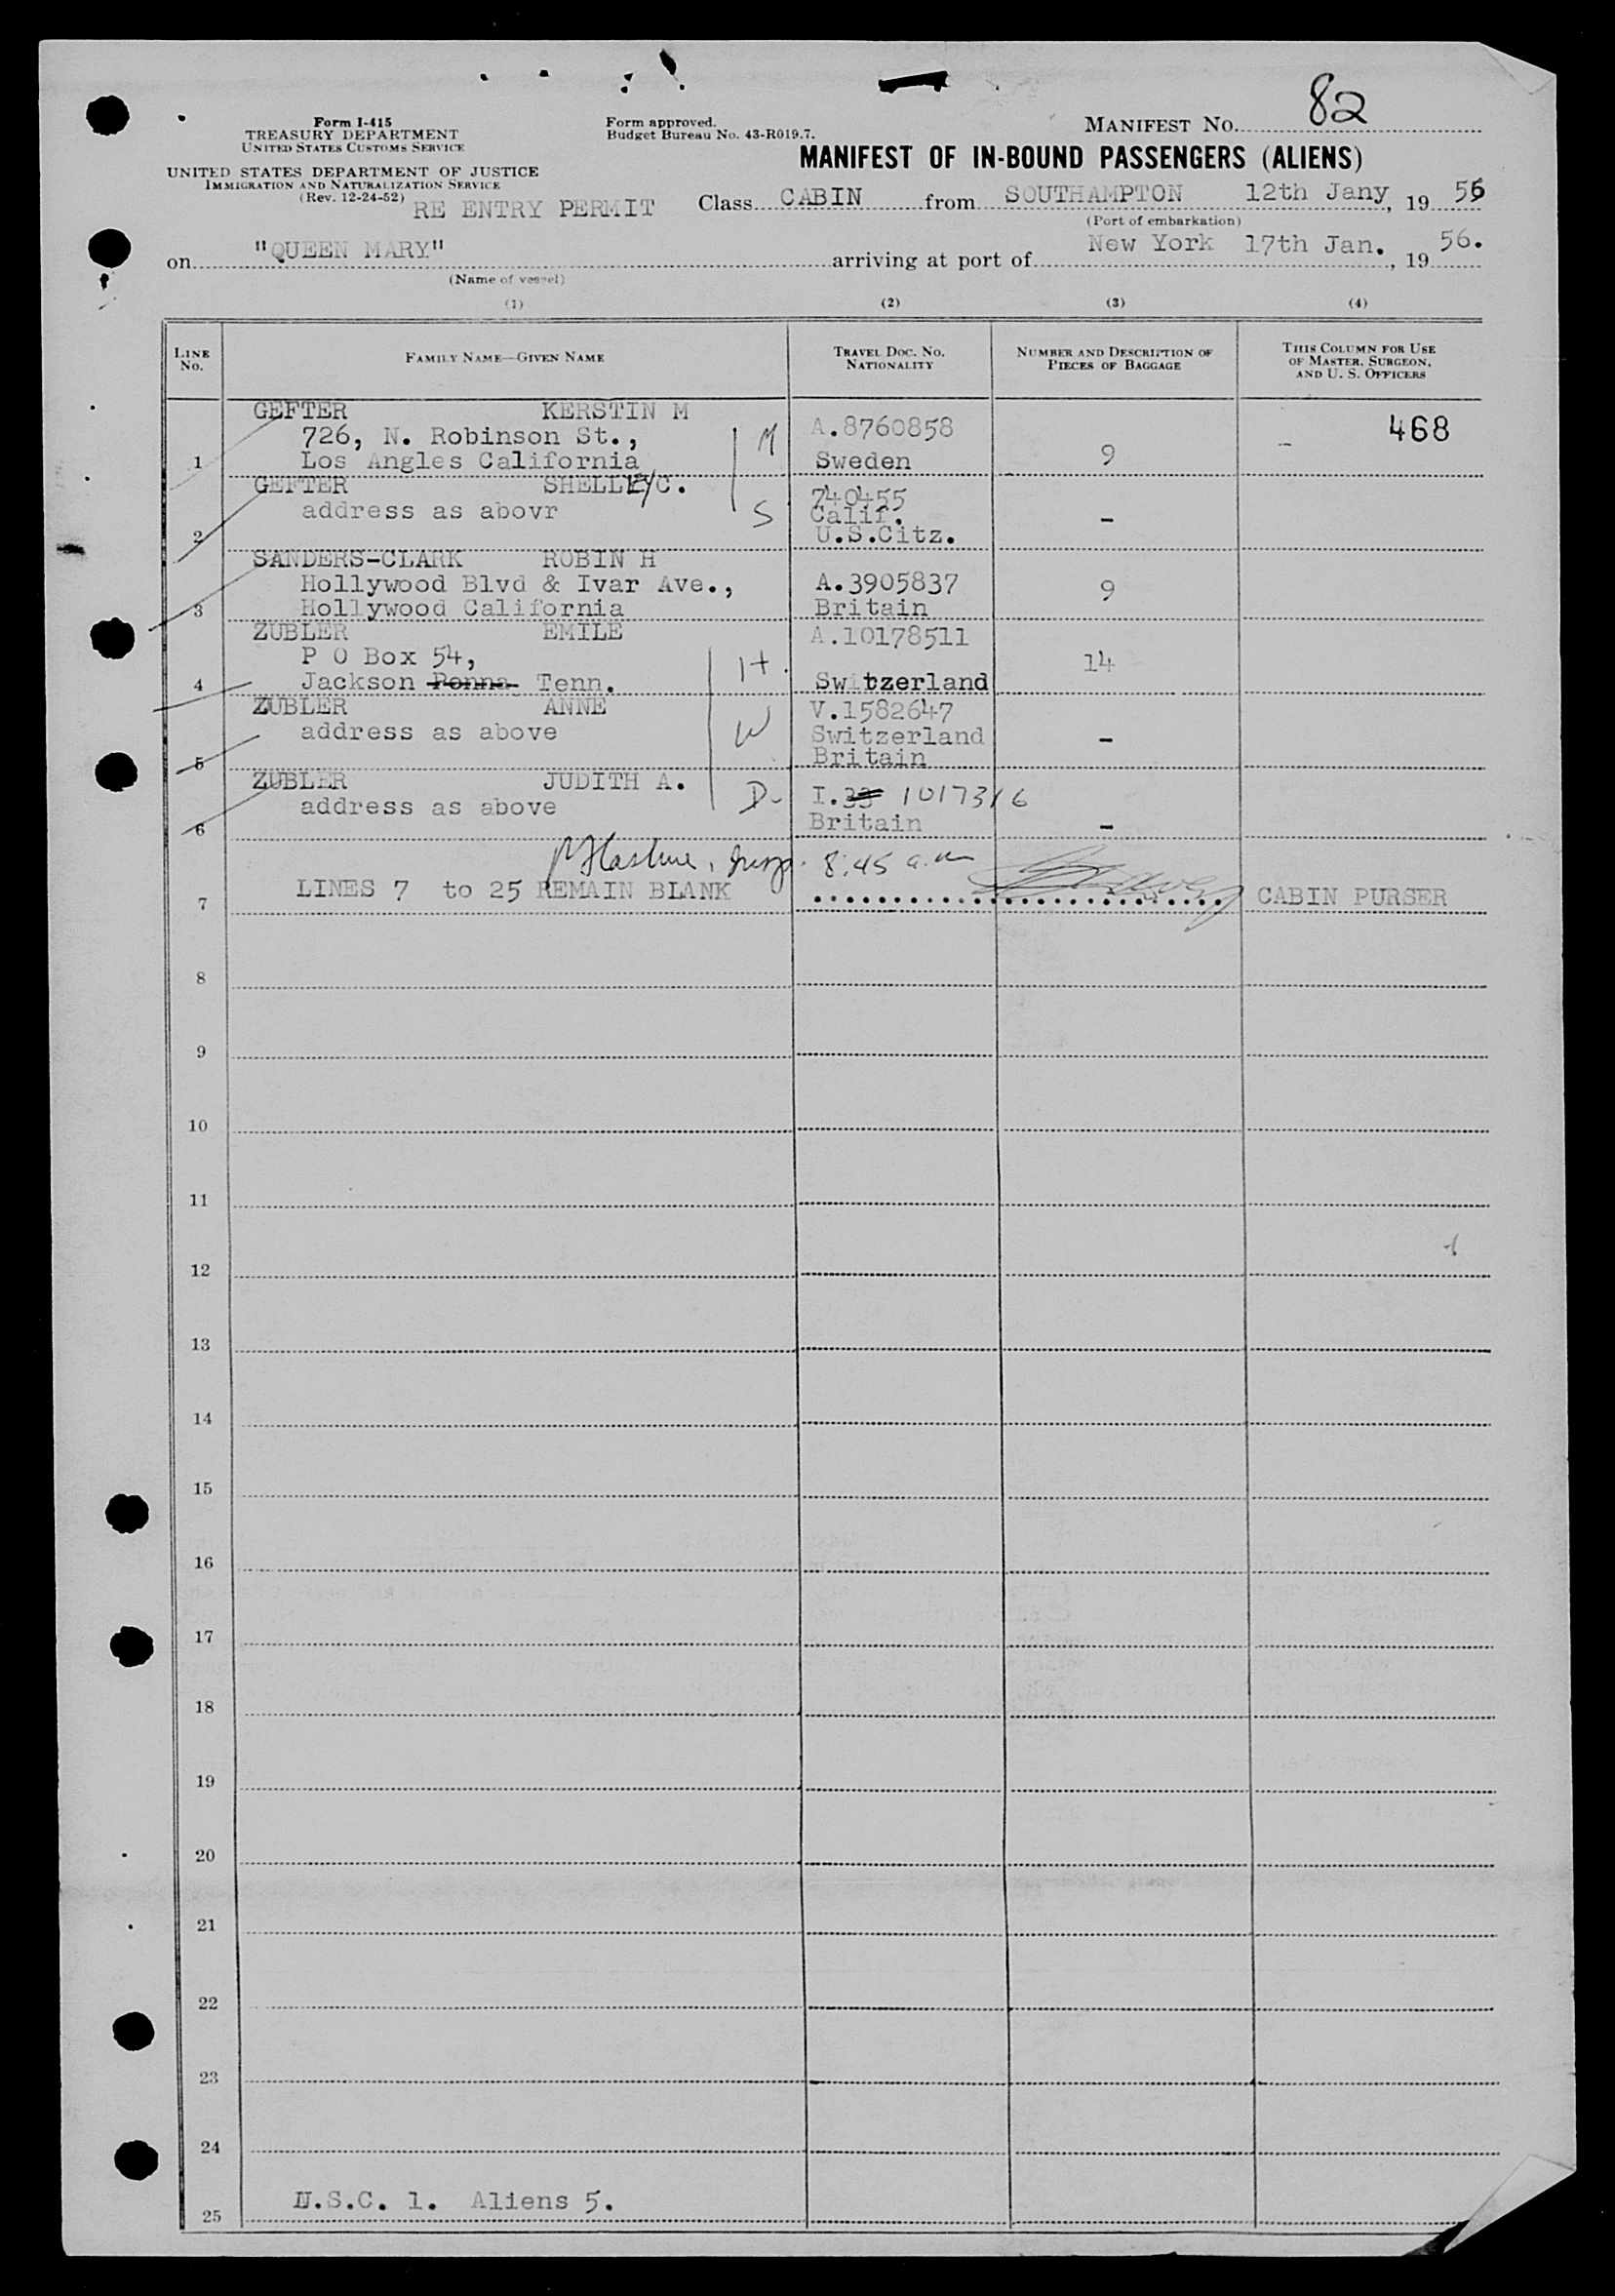 Form I-415
TREASURY DEPARTMENT
UNITED STATES CUSTOMS SERVICE
UNITED STATES DEPARTMENT OF JUSTICE
IMMIGRATION AND NATURALIZATION SERVICE
(Rev. 12-24-52)
RE ENTRY PERMIT
Form approved.
Budget Bureau No. 43-R019.7.
MANIFEST NO. 82
MANIFEST OF IN-BOUND PASSENGERS (ALIENS)
Class CABIN from SOUTHAMPTON 12th Jany, 19 56
(Port of embarkation)
on "QUEEN MARY" arriving at port of New York 17th Jan., 19 56.
(Name of vessel)
(1) (2) (3) (4)
LINE NO. FAMILY NAME—GIVEN NAME TRAVEL DOC. NO. NATIONALITY NUMBER AND DESCRIPTION OF PIECES OF BAGGAGE THIS COLUMN FOR USE OF MASTER, SURGEON, AND U. S. OFFICERS
GEFTER KERSTIN M
726, N. Robinson St., M A.8760858 468
1 Los Angles California Sweden 9 –
GEFTER SHELLEY C. 740455
address as abovr S Calif. -
2 U.S.Citz.
SANDERS-CLARK ROBIN H
Hollywood Blvd & Ivar Ave., A.3905837 9
3 Hollywood California Britain
ZUBLER EMILE A.10178511
P O Box 54, H. 14
4 Jackson Penna Tenn. Switzerland
ZUBLER ANNE V.1582647
address as above W Switzerland -
5 Britain
ZUBLER JUDITH A.
address as above D. I.33 1017316
6 Britain -
8:45 a.m
7 LINES 7 to 25 REMAIN BLANK CABIN PURSER
8
9
10
11
12
13
14
15
16
17
18
19
20
21
22
23
24
25 U.S.C. 1. Aliens 5.